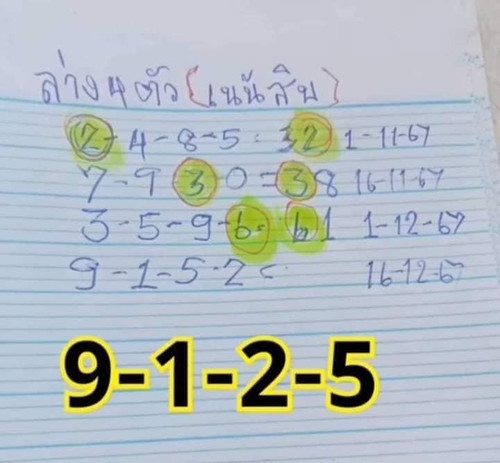 ล่าง 4 ตัว (เน้นสิบ)
2-4-8-5=32 1-11-67
7-9 3 0=38 16-11-67
3-5-9-6=61 1-12-67
9-1-5-2= 16-12-67
9-1-2-5